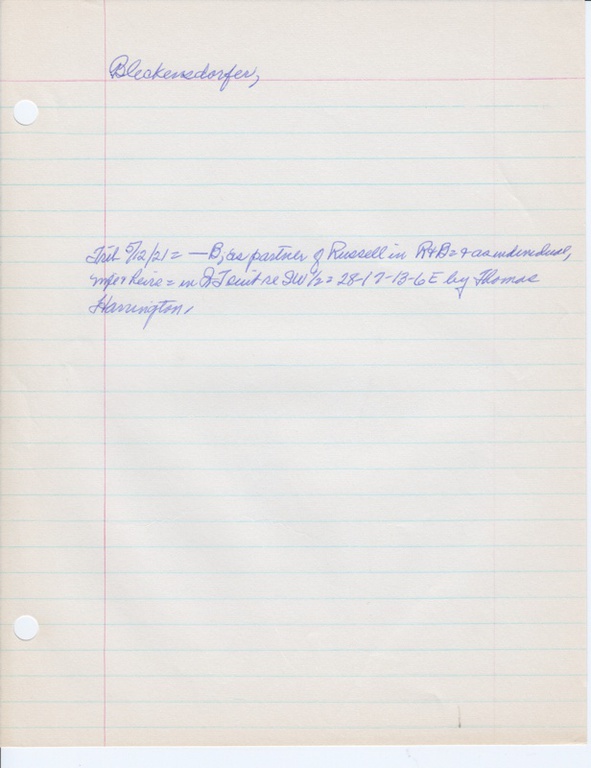 Bleckensdorfer,
Trib 5/12/21 = — B, as partner of Russell in R+B = + as individual,
wife + heirs = in QT suit re SW ½ = 28-17-13-6E by Thomas
Harrington,